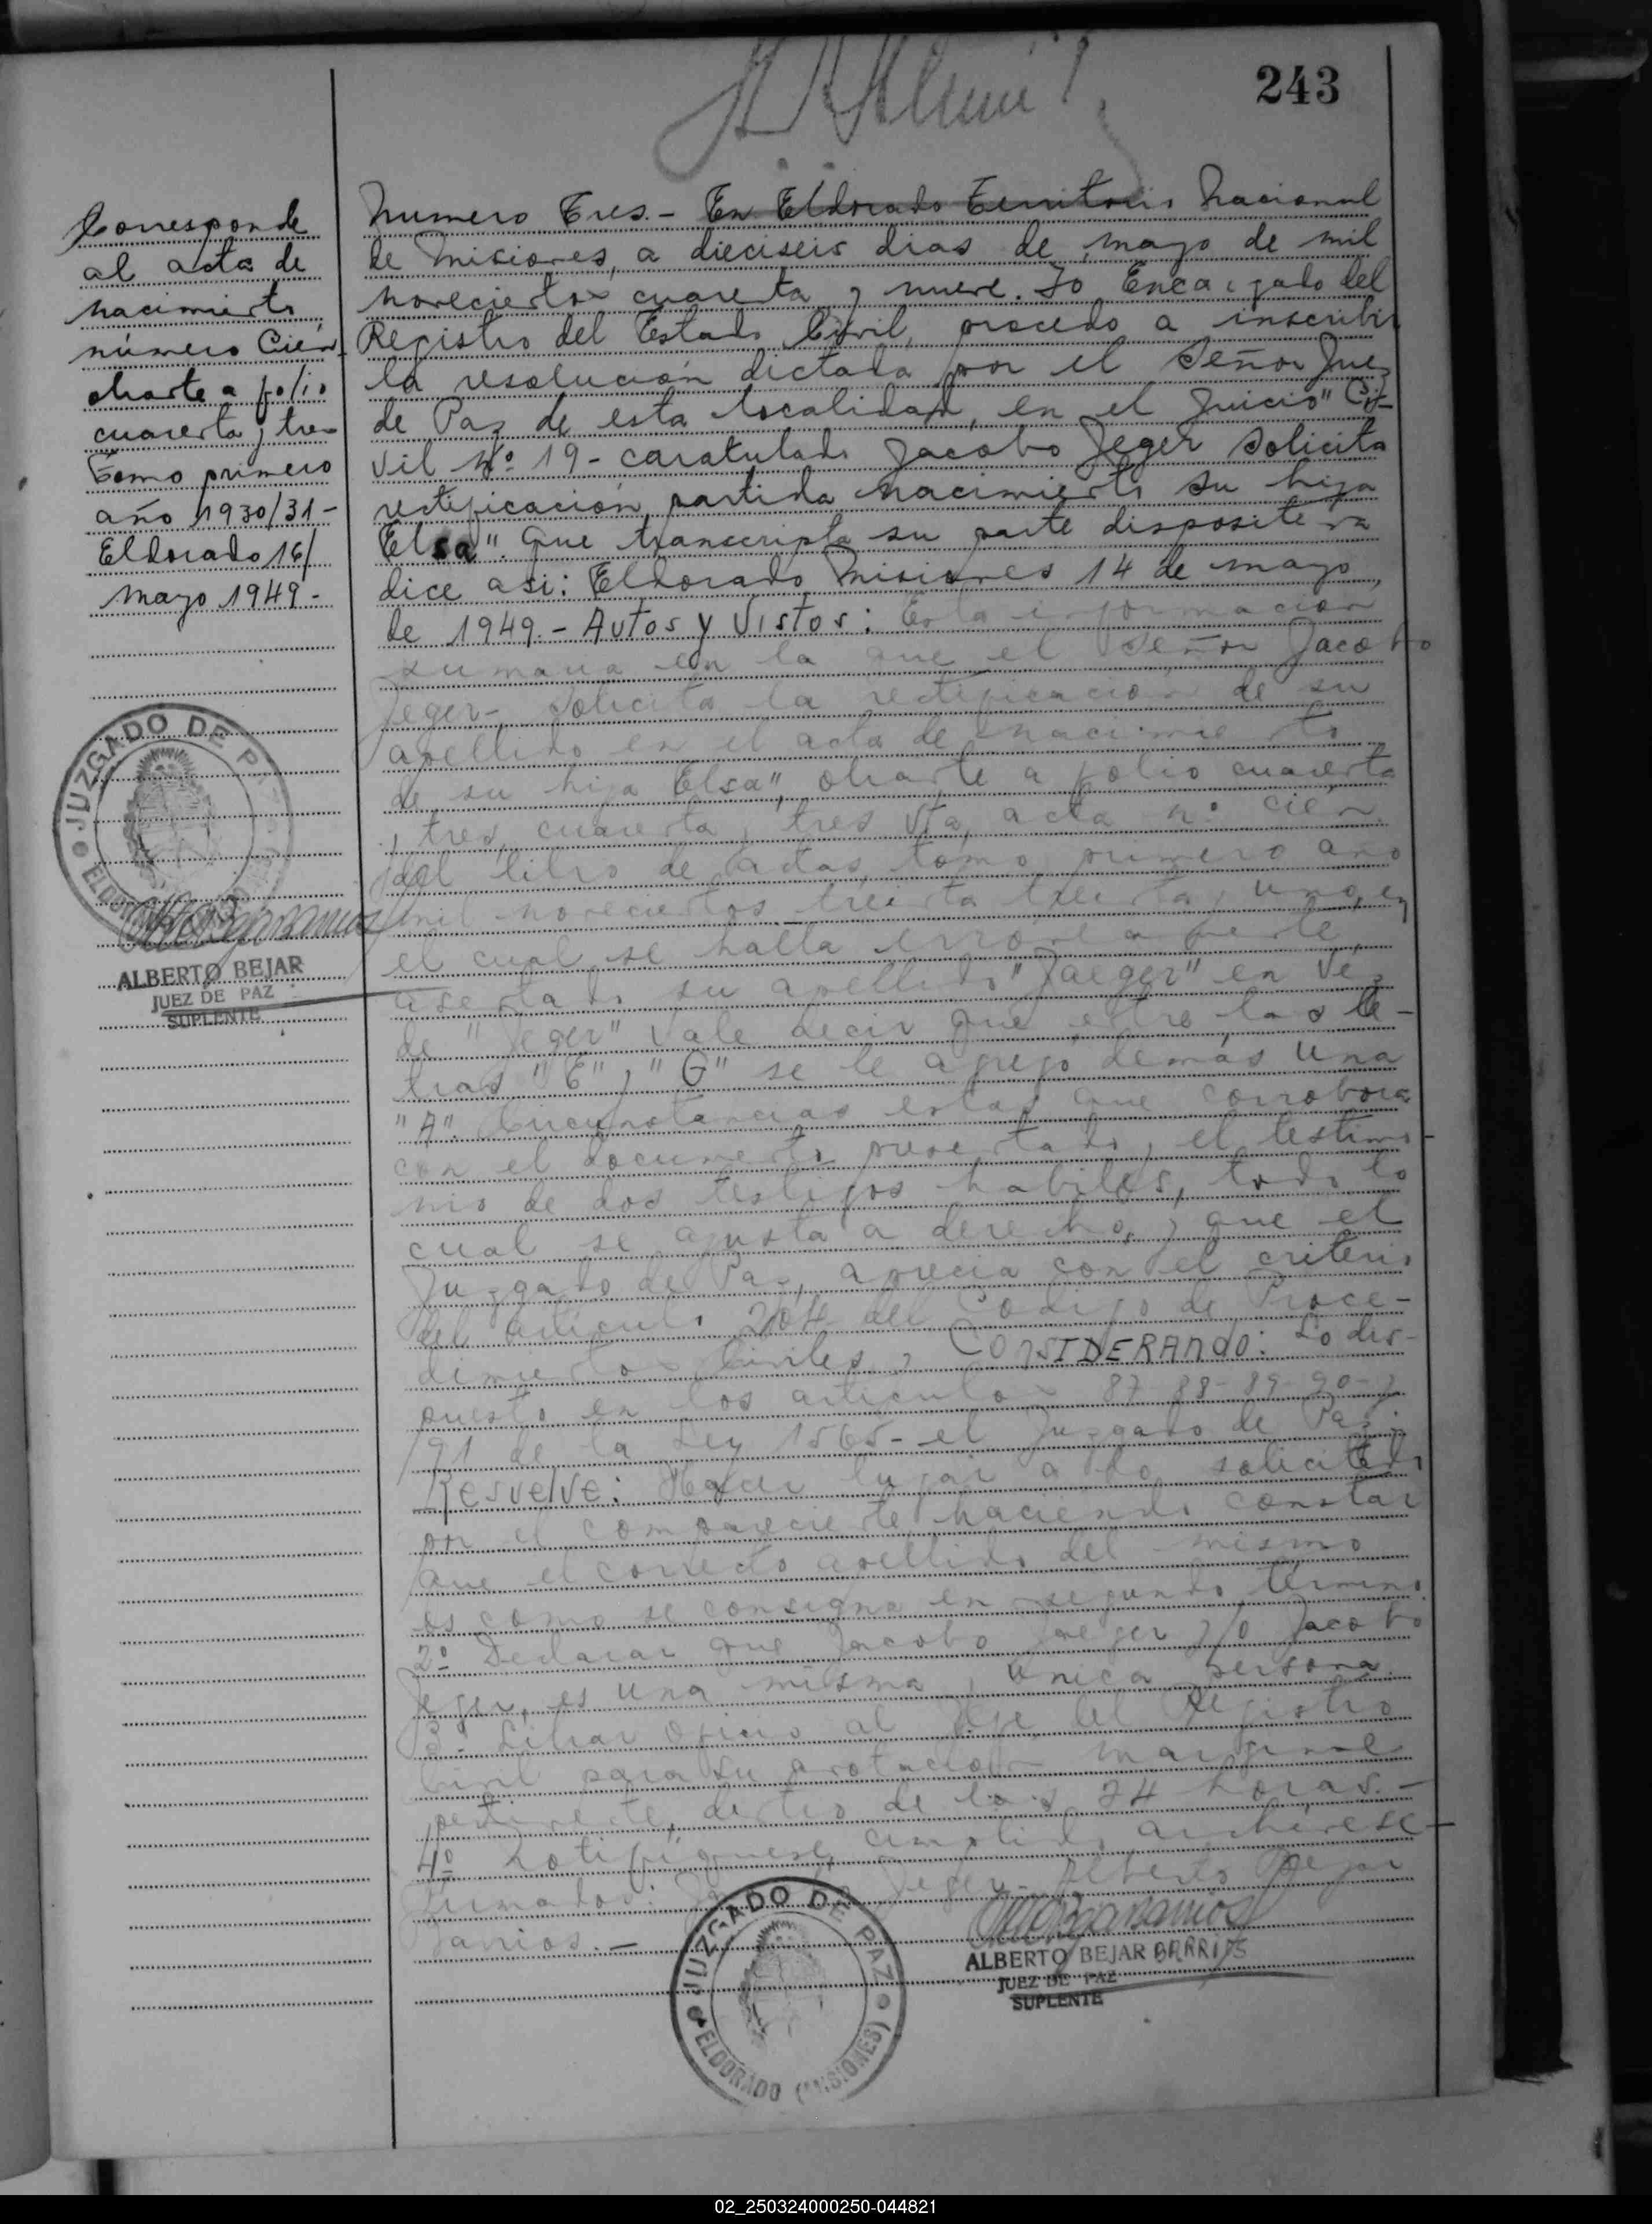 243
Corresponde
al acta de
nacimiento
número Cien
obrante a folio
cuarenta y tres
Tomo primero
año 1930/31-
Eldorado 16/
Mayo 1949-
JUZGADO DE PAZ
ELDORADO
ALBERTO BEJAR
JUEZ DE PAZ
SUPLENTE
Numero Tres.- En Eldorado Territorio Nacional
de Misiones, a dieciseis dias de mayo de mil
novecientos cuarenta y nueve. Yo Encargado del
Registro del Estado Civil, procedo a inscribir
la resolución dictada por el Señor Juez
de Paz de esta localidad, en el Juicio "Ci-
vil Nº 19- caratulado Jacobo Jeger solicita
rectificación partida nacimiento su hija
Elsa". Que transcripta su parte dispositiva
dice asi: Eldorado Misiones 14 de mayo,
de 1949.- Autos y Vistos: Esta información
sumaria en la que el Señor Jacobo
Jeger-, solicita la rectificación de su
apellido en el acta de nacimiento
de su hija Elsa", obrante a folio cuarenta
y tres, cuarenta y tres vta, acta nº cien
del libro de actas, tomo primero año
mil novecientos treinta treinta y uno, en
el cual se halla erróneamente
asentado su apellido "Jaeger" en vez
de "Jeger" vale decir que entre las le-
tras "E" y "G" se le agregó demás una
"A". Circunstancias estas que corrobora
con el documento presentado y el testimo-
nio de dos testigos habiles, todo lo
cual se ajusta a derecho, y que el
Juzgado de Paz, aprecia con el criterio
del articulo 204 del Codigo de Proce-
dimientos Civiles, y CONSIDERANDO: Lo dis-
puesto en los articulos 87-88-89-90-y
91 de la Ley 1565- el Juzgado de Paz
Resuelve: Hacer lugar a lo solicitado
por el compareciente haciendo constar
que el correcto apellido del mismo
es como se consigna en segundo término
2º Declarar que Jacobo Jaeger y/o Jacobo
Jeger, es una misma y unica persona.
3º- Librar oficio al Jefe del Registro
Civil para su anotación marginal
pertinente, dentro de las 24 horas.-
4º Notifíquese, cumplido archívese-
Firmados: Jacobo Jeger- Alberto Bejar
Barrios.-
JUZGADO DE PAZ
ELDORADO (MISIONES)
ALBERTO BEJAR BARRIOS
JUEZ DE PAZ
SUPLENTE
02_250324000250-044821